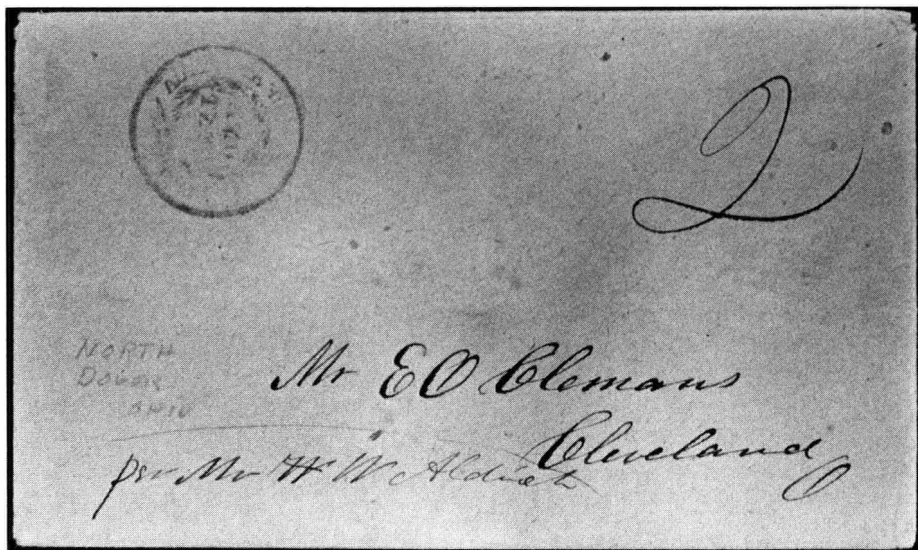 2
NORTH
Dover
OHIO
Mr E O Clemans
Cleveland
O
per Mr H W Aldrich